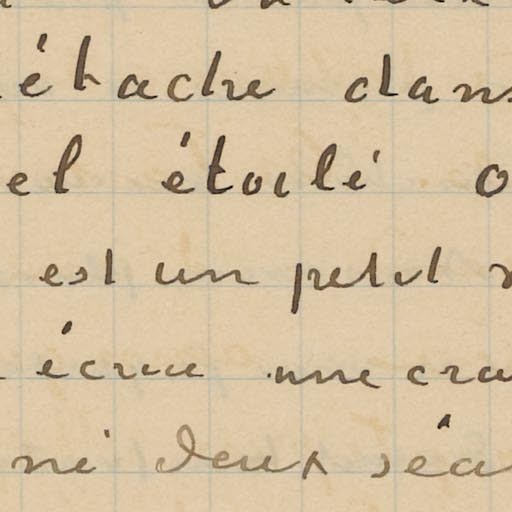 étache dans
el étoilé
est un petit
écrue une cra
né deux séa